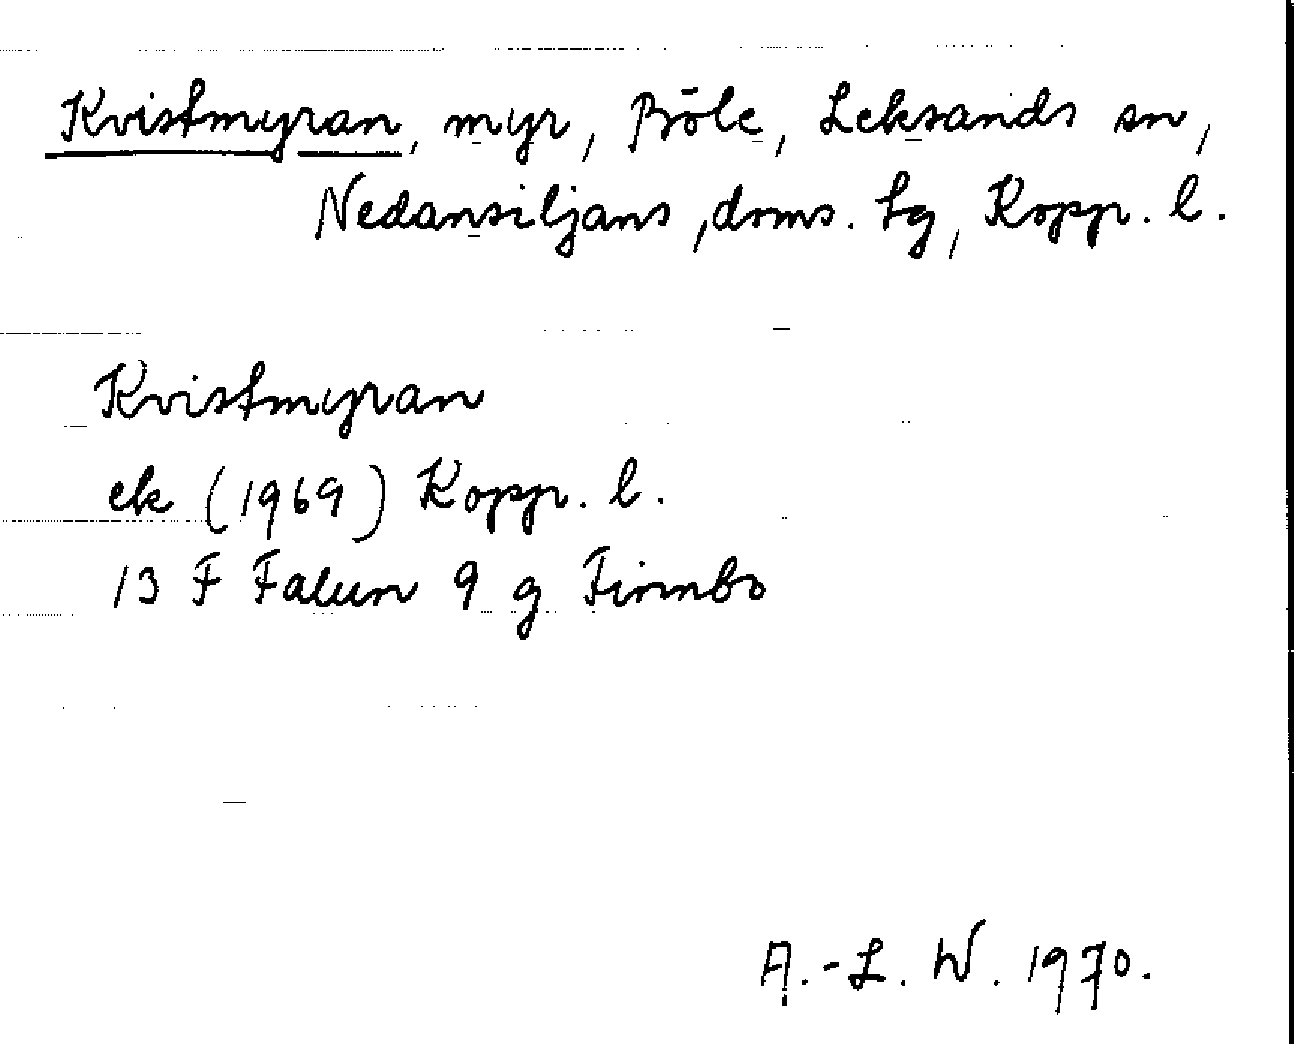 Kvistmyran, myr, Böle, Leksands sn,
Nedansiljans, doms. tg, Kopp. l.
Kvistmyran
ek (1969) Kopp. l.
13 F Falun 9 g Finnbo
A.-L. W. 1970.